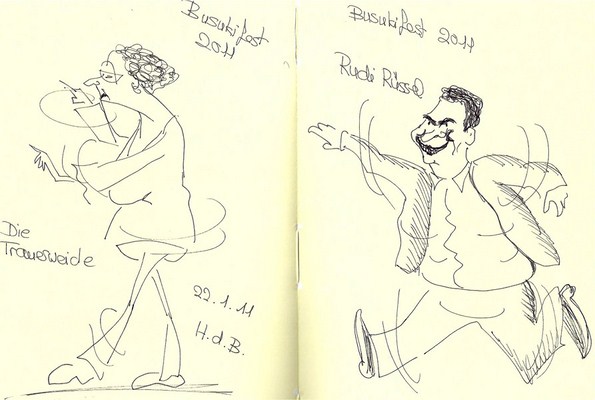 Busukifest
2011
Die
Trauerweide
22.1.11
H.d.B.
Busukifest 2011
Rudi Rüssel